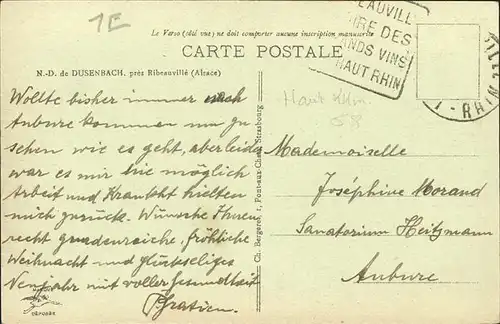 1E
Le Verso (côté vue) ne doit comporter aucune inscription manuscrite
CARTE POSTALE
EAUVILL
IRE DES
ANDS VINS
HAUT RHIN
- RHIN
N.-D. de DUSENBACH, près Ribeauvillé (Alsace)
Wollte bisher immer nach
Aubure kommen um zu
sehen wie es geht, aber leider
war es mir nie möglich
Arbeit und Krankheit hielten
mich zurück. Wünsche Ihnen
recht gnadenreiche, fröhliche
Weihnacht und glückseliges
Neujahr mit voller Gesundheit
P. Gratien.
DÉPOSÉE
Ch. Bergeret, Strasbourg
Haut Rhin
68
Mademoiselle
Joséphine Morand
Sanatorium Heitzmann
Aubure